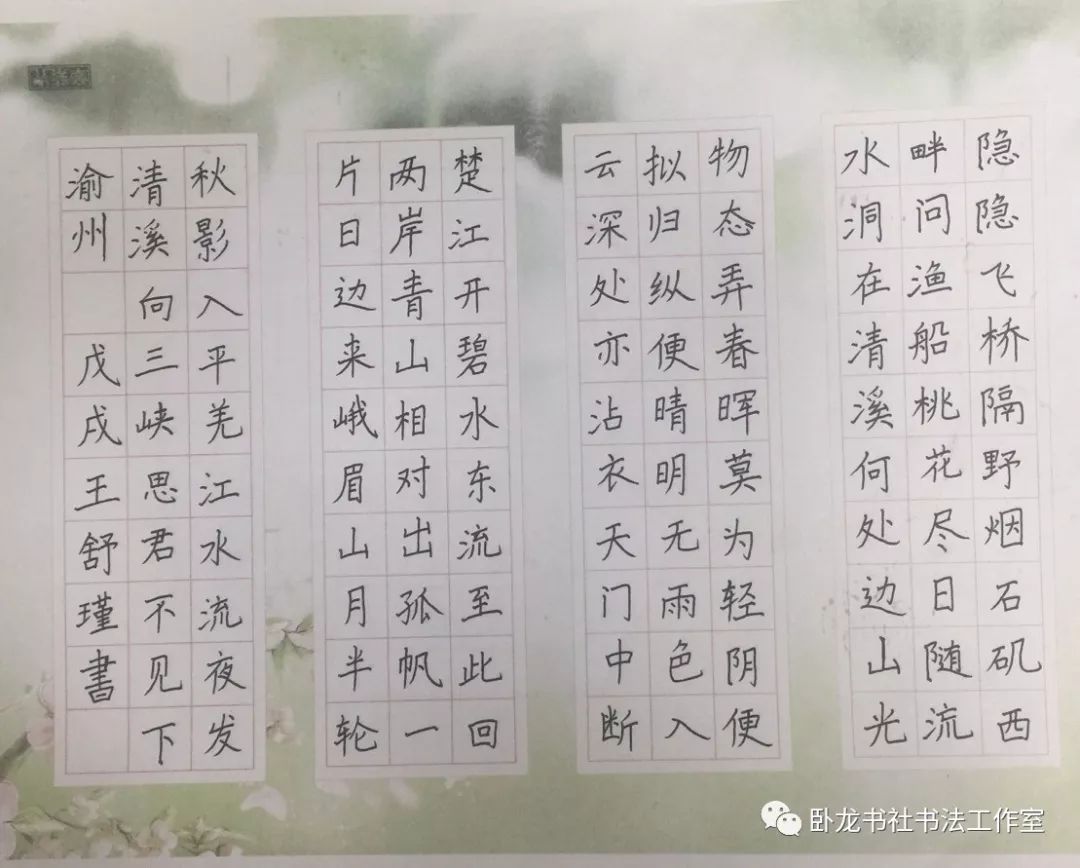 隐隐飞桥隔野烟石矶西
畔问渔船桃花尽日随流
水洞在清溪何处边山光
物态弄春晖莫为轻阴便
拟归纵便晴明无雨色入
云深处亦沾衣天门中断
楚江开碧水东流至此回
两岸青山相对出孤帆一
片日边来峨眉山月半轮
秋影入平羌江水流夜发
清溪向三峡思君不见下
渝州 戊戌王舒瑾書
卧龙书社书法工作室